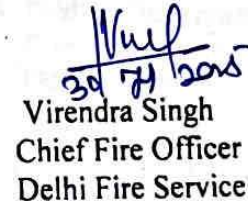 Virendra Singh
Chief Fire Officer
Delhi Fire Service